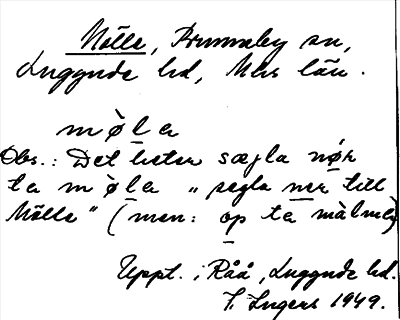 Mölle, Brunnby sn,
Luggude hd, Mlhs län.
mø̀la
Obs.: Det heter sægla nør
ta mø̀la "segla ner till
Mölle" (men: op ta màlmø)
Uppt. i Råå, Luggude hd.
T. Ingers 1949.